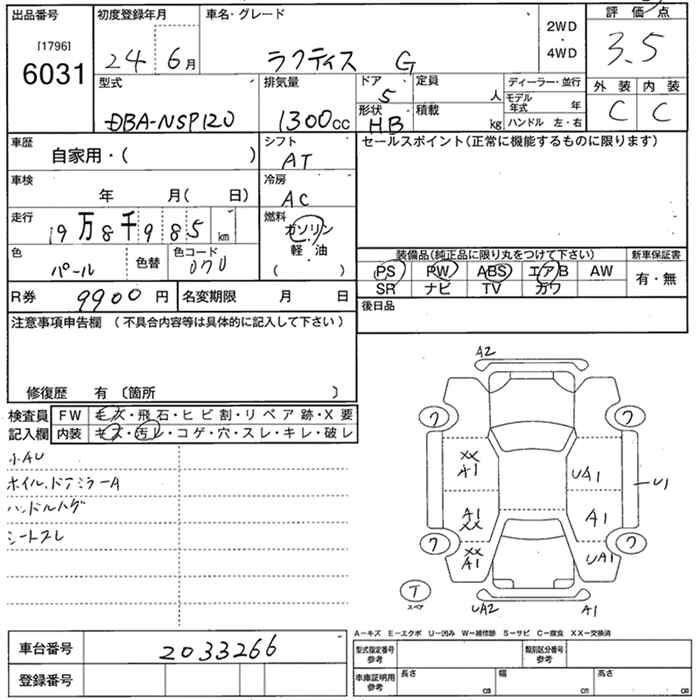 出品番号 初度登録年月 車名・グレード 評価点
[1796] 2WD
6031 24 6月 ラクティス G ・ 3.5
4WD
型式 排気量 ドア 5 定員 人 ディーラー・並行 外装 内装
モデル年式 年
DBA-NSP120 1300cc 形状 HB 積載 kg ハンドル 左・右 C C
車歴 シフト セールスポイント(正常に機能するものに限ります)
自家用・( ) AT
車検 冷房
年 月( 日) AC
走行 燃料
19万8千985km ガソリン
軽・油
色 色替 色コード 装備品(純正品に限り丸をつけて下さい) 新車保証書
パール 070 ( ) PS PW ABS エアB AW 有・無
SR ナビ TV カワ
R券 9900円 名変期限 月 日 後日品
注意事項申告欄 (不具合内容等は具体的に記入して下さい)
修復歴 有 〔箇所 〕
検査員 FW キズ・飛石・ヒビ割・リペア跡・X要
記入欄 内装 キズ・汚レ・コゲ・穴・スレ・キレ・破レ
小AU
ホイル、ドアミラーA
ハンドルハゲ
シートスレ
A2
ワ ワ
XX
A1 UA1 U1
A1 A1
XX
ワ ワ
XX
A1 UA1
T
スペア UA2 A1
A-キズ E-エクボ U-凹み W-補修跡 S-サビ C-腐食 XX-交換済
車台番号 2033266 型式指定番号 参考 類別区分番号 参考
登録番号 車庫証明用 参考 長さ cm 幅 cm 高さ cm